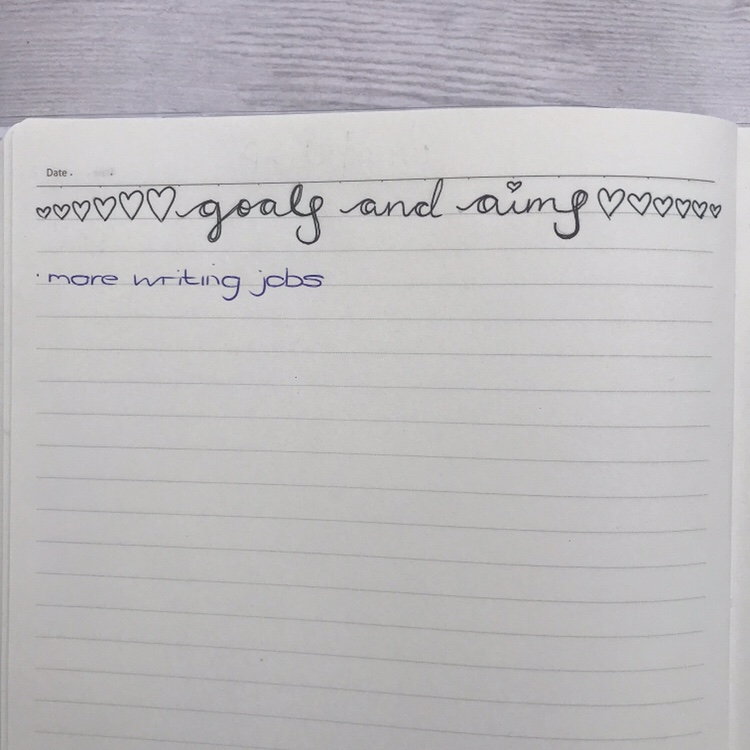 Date .
goals and aims
· more writing jobs